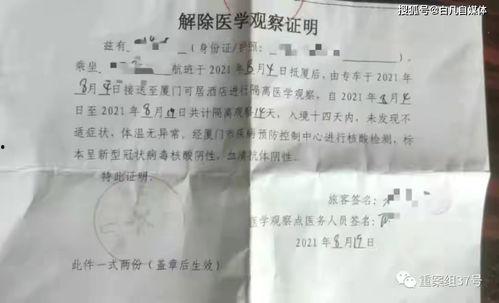 搜狐号@白凡自媒体
解除医学观察证明
兹有 (身份证/护照: ),
乘坐 航班于2021年8月4日抵厦后,由专车于2021年
8月4日接送至厦门可居酒店进行隔离医学观察,自2021年8月4
日至2021年8月17日共计隔离观察14天,入境十四天内,未发现不
适症状,体温无异常,经厦门市疾病预防控制中心进行核酸检测,标
本呈新型冠状病毒核酸阴性,血清抗体阴性。
特此证明。
旅客签名:
医学观察点医务人员签名:
2021年8月17日
此件一式两份(盖章后生效)
重案组37号